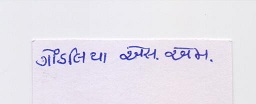 ગોંડલિયા એસ. એમ.